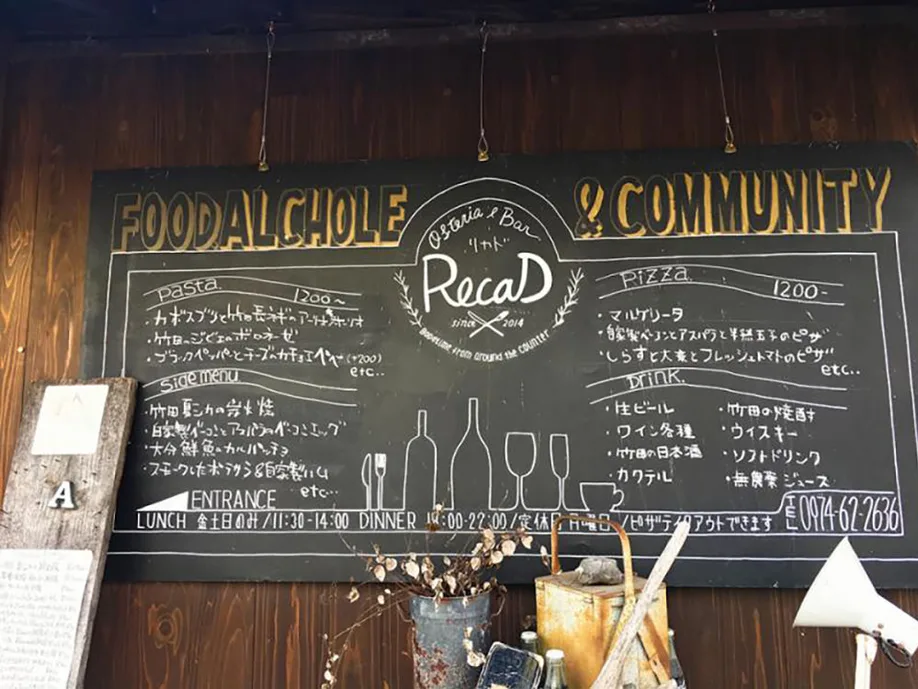 FOOD.ALCHOLE
& COMMUNITY
Osteria e Bar
リカド
RecaD
since 2014
from around the counter
Pasta 1200~
・カボスブリと竹田長ネギの
・竹田のジビエのボロネーゼ
・ブラックペッパーとチーズのカチョエペペ (+200)
etc..
Side menu
・竹田夏シカの炭火焼
・自家製ベーコンとアスパラのベーコンエッグ
・大分鮮魚のカルパッチョ
・スモークしたポテサラ&自家製ハム
etc...
Pizza 1200-
・マルゲリータ
・自家製ベーコンとアスパラと半熟玉子のピザ
・しらすと大葉とフレッシュトマトのピザ
etc..
Drink.
・生ビール
・ワイン各種
・竹田の日本酒
・カクテル
・竹田の焼酎
・ウイスキー
・ソフトドリンク
・無農薬ジュース
ENTRANCE
LUNCH 金土日のみ/11:30-14:00 DINNER :00-22:00/定休日 月曜日/ピザテイクアウトできます
TEL 0974-62-2636
A